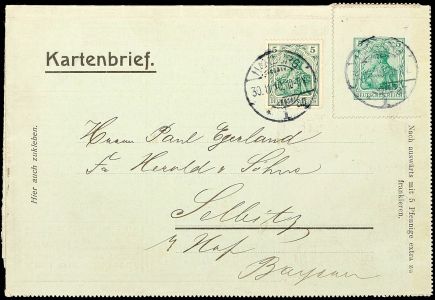 Kartenbrief.
5 5
DEUTSCHES REICH
Hier auch zukleben.
Nach auswärts mit 5 Pfennige extra zu
frankieren.
Herrn Paul Egerland
Fa Herold & Söhne
Selbitz
b/ Hof
Bayern